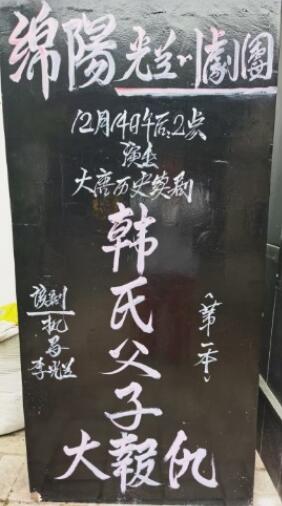 绵陽光兰川劇團
12月14日午后:2点
演出
大唐历史续剧
韩氏父子
大報仇
《第一本》
該剧
执导
李光兰